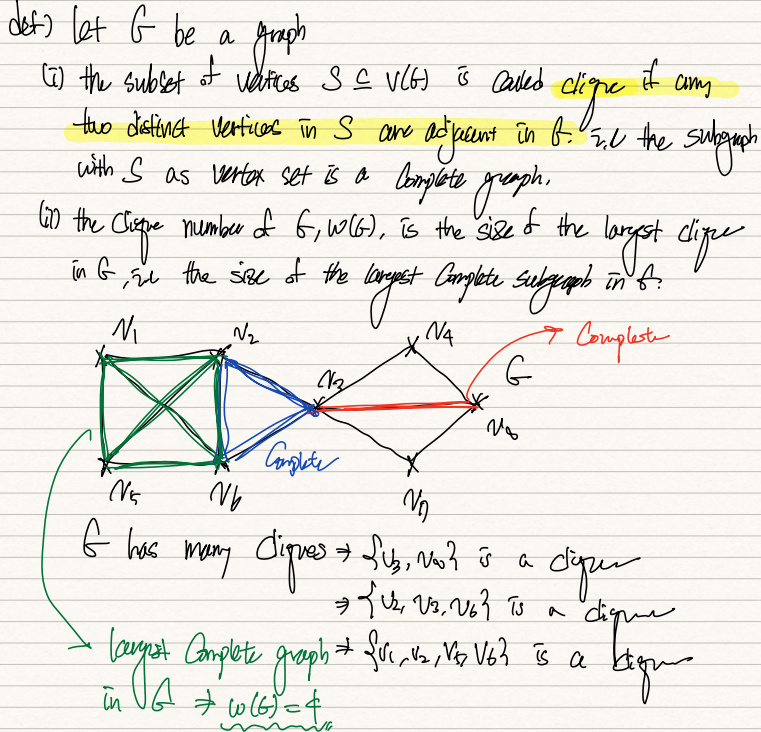 def) Let G be a graph
(i) the subset of vertices S ⊆ V(G) is called clique if any
two distinct vertices in S are adjacent in G. i.e the subgraph
with S as vertex set is a complete graph.
(ii) the clique number of G, ω(G), is the size of the largest clique
in G, i.e the size of the largest complete subgraph in G.
V1 V2 V4 Complete
V3 G
V8
Complete
V5 V6 V7
G has many cliques ⇒ {V3, V8} is a clique
⇒ {V2, V3, V6} is a clique
largest complete graph ⇒ {V1, V2, V5, V6} is a clique
in G ⇒ ω(G) = 4